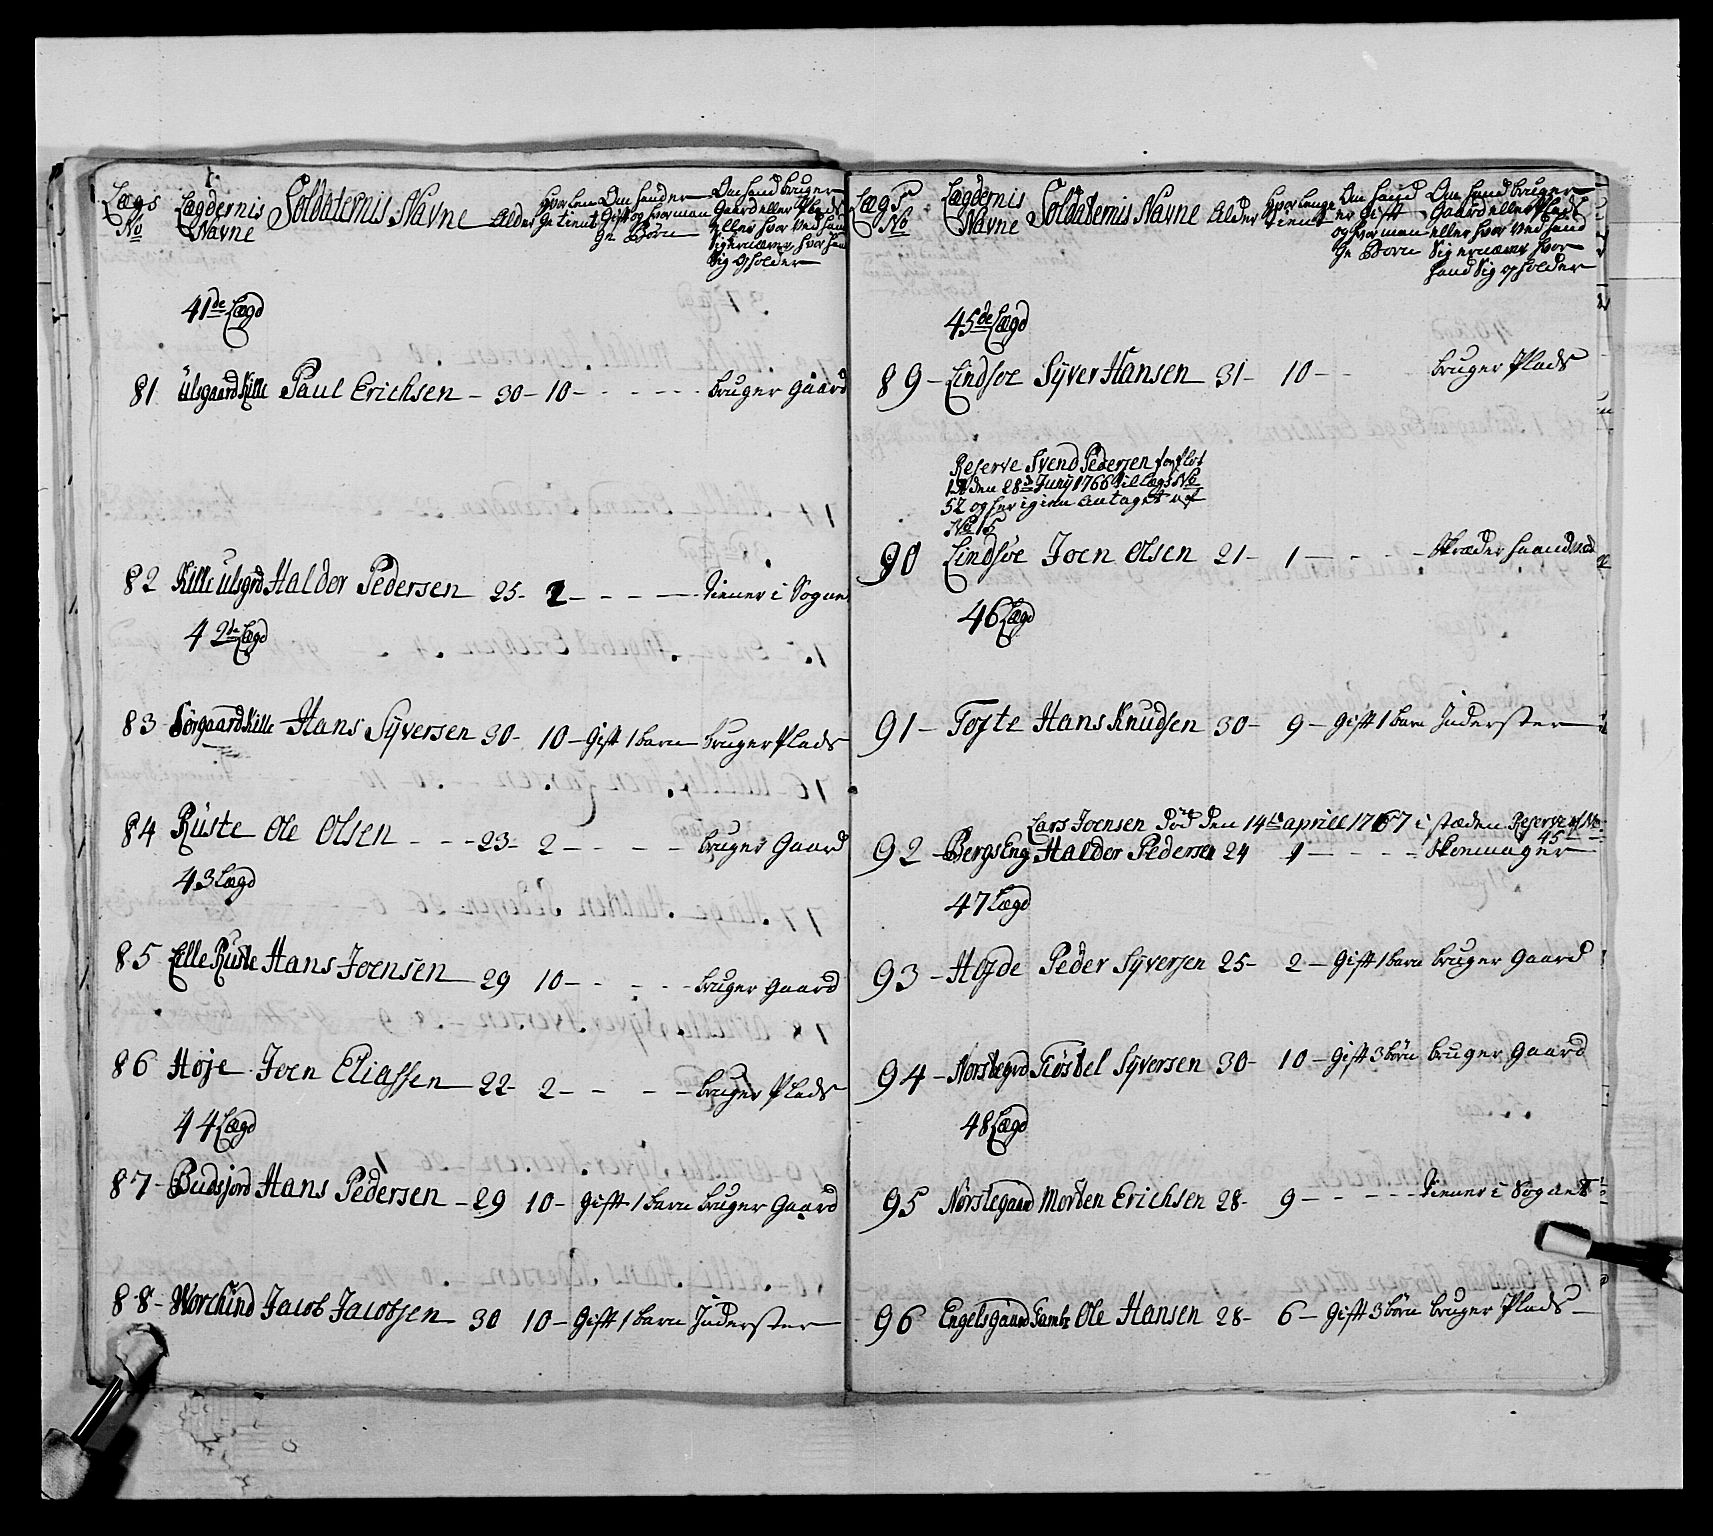 Lægs No
Lægdernis Navne
Soldaternis Navne
Alder
Hvor længe tient
Om hand er Gift og hvor mange Børn
Om hand bruger Gaard eller Plads eller hvor ved hand Sig ernærer, hvor hand Sig opholder
41de Lægd
81 Ulsgaard Kille Paul Erichsen – 30 – 10 – – – – – bruger Gaard
82 Kille Ulsgrd Haldor Pedersen 25 – 2 – – – – tiener i Sogne
42de Lægd
83 Sørgaard Kille Hans Syversen 30 – 10 – Gift 1 barn bruger Plads
84 Rüste Ole Olsen – – – 23 – 2 – – – – bruger Gaard
43 Lægd
85 Lille Rüste Hans Joensen 29 10 – – – – bruger Gaard
86 Høje Joen Eliassen 22 – 2 – – – – bruger Plads
44 Lægd
87 – Budsjord Hans Pedersen – 29 10 – Gift 1 barn bruger Gaard
88 – Jacob Jacobsen 30 10 – Gift 1 barn Inderster
Lægs No
Lægdernis Navne
Soldadernis Navne
Alder
Hvor lenge tient
Om hand er Gift og hvor mange Børn
Om hand bruger Gaard eller Plads eller hvor ved hand Sig ernærer hvor hand Sig opholder
45de Lægd
89 – Lindsøe Syver Hansen 31 – 10 – – bruger Plads
Reserve Svend Pedersen
den 28de Juny 1766 til Lægs No
52 og her igien antaget
No 15
90 Lindsøe Joen Olsen 21 – 1 – – – – Skræder haand
46 Lægd
91 – Tofte Hans Knudsen 30 – 9 – Gift 1 barn Inderster
Lars Joensen Död den 14de aprill 1767 i stæden Reserve af No 45
92 – Bergs Eng Haldor Pedersen 24 1 – – – – Skoemager
47 Lægd
93 – Hofde Peder Syversen 25 – 2 – Gift 1 barn bruger Gaard
94 – Norstegrd Tiøstel Syversen 30 – 10 – Gift 3 börn bruger Gaard
48 Lægd
95 Nörstegaard Morden Erichsen 28 – 9 – – – – – tiener i Sognet
96 Engelsgaard Ole Hansen 28 – 6 – Gift 3 börn bruger Plads –